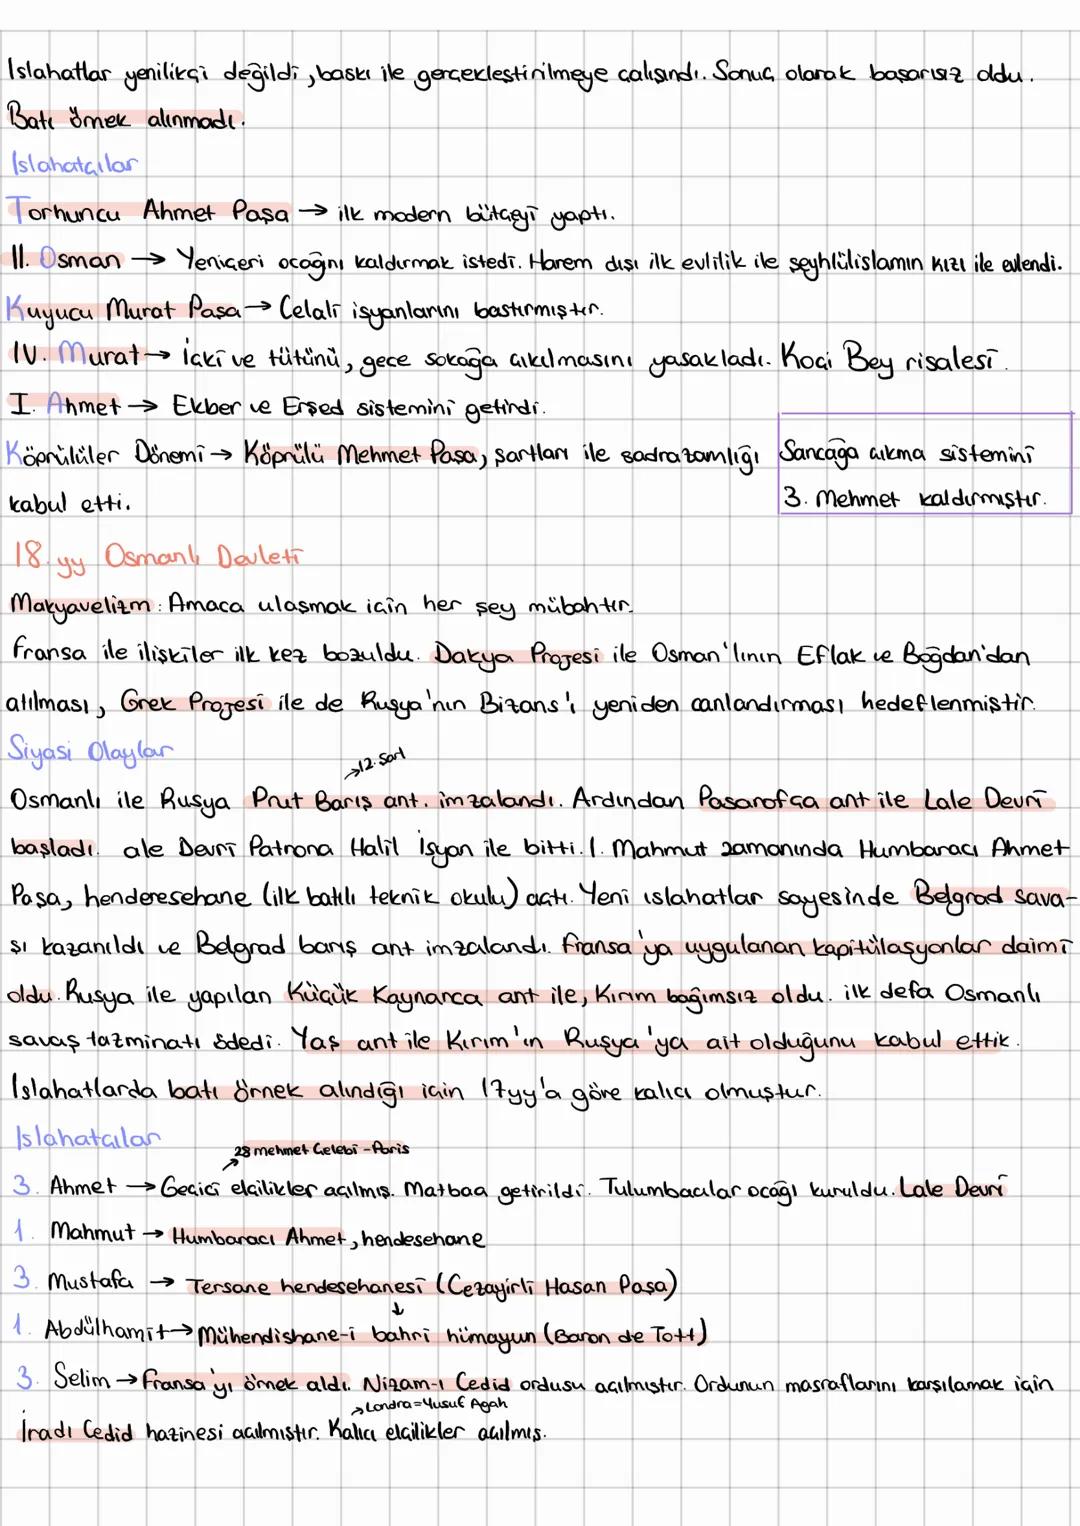 Islahatlar yenilikçi değildi, baskı ile gerçekleştirilmeye çalışıldı. Sonuç olarak başarısız oldu.
Batı örnek alınmadı.
Islahatçılar
Tarhuncu Ahmet Paşa → ilk modern bütçeyi yaptı.
II. Osman → Yeniçeri ocağını kaldırmak istedi. Harem dışı ilk evlilik ile şeyhlülislamın kızı ile evlendi.
Kuyucu Murat Paşa → Celali isyanlarını bastırmıştır.
IV. Murat → İçki ve tütünü, gece sokağa çıkılmasını yasakladı. Koçi Bey risalesi.
I. Ahmet → Ekber ve Erşed sistemini getirdi.
Köprülüler Dönemi → Köprülü Mehmet Paşa, şartları ile sadrazamlığı
kabul etti.
Sancağa çıkma sistemini
3. Mehmet kaldırmıştır.
18. yy Osmanlı Devleti
Makyavelizm: Amaca ulaşmak için her şey mübahtır.
Fransa ile ilişkiler ilk kez bozuldu. Dakya Projesi ile Osman'lının Eflak ve Boğdan'dan
atılması, Grek Projesi ile de Rusya'nın Bizans'ı yeniden canlandırması hedeflenmiştir.
Siyasi Olaylar
→12. Şart
Osmanlı ile Rusya Prut Barış ant. imzalandı. Ardından Pasarofça ant ile Lale Devri
başladı. ale Devri Patrona Halil İsyan ile bitti. I. Mahmut zamanında Humbaracı Ahmet
Paşa, henderesehane (ilk batılı teknik okulu) açtı. Yeni ıslahatlar sayesinde Belgrad sava-
şı kazanıldı ve Belgrad barış ant imzalandı. Fransa'ya uygulanan kapitülasyonlar daimi
oldu. Rusya ile yapılan Küçük Kaynarca ant ile, Kırım bağımsız oldu. ilk defa Osmanlı
savaş tazminatı ödedi. Yaş ant ile Kırım'ın Rusya'ya ait olduğunu kabul ettik.
Islahatlarda batı örnek alındığı için 17yy'a göre kalıcı olmuştur.
Islahatçılar
→28 mehmet Çelebi - Paris
3. Ahmet → Geçici elçilikler açılmış. Matbaa getirildi. Tulumbacılar ocağı kuruldu. Lale Devri
1. Mahmut → Humbaracı Ahmet, hendesehane
3. Mustafa → Tersane hendesehanesi (Cezayirli Hasan Paşa)
↓
1. Abdülhamit → Mühendishane-i bahri hümayun (Baron de Tott)
3. Selim → Fransa'yı örnek aldı. Nizam-ı Cedid ordusu açılmıştır. Ordunun masraflarını karşılamak için
→Londra=Yusuf Agah
İradı Cedid hazinesi açılmıştır. Kalıcı elçilikler açılmış.